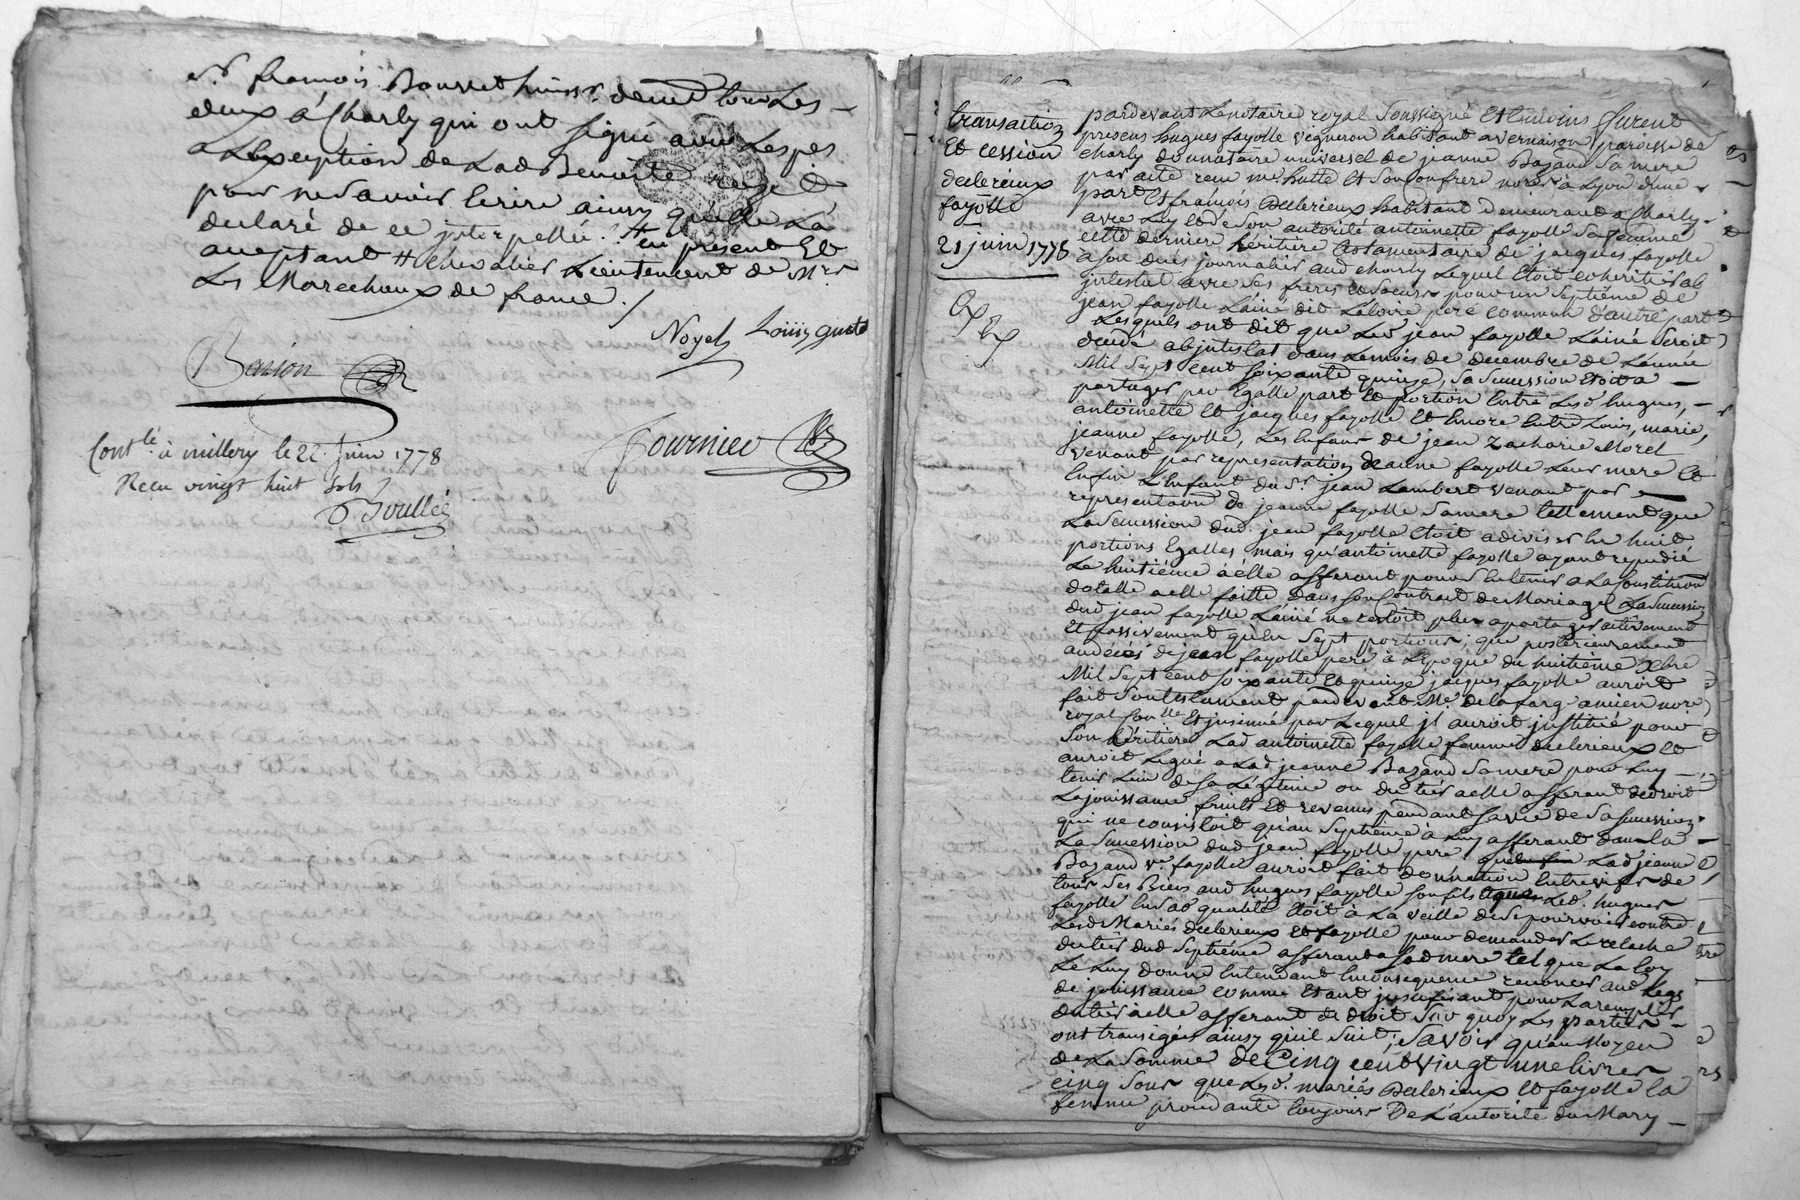 Sr. françois Bourret huissr. demt. tous les
deux à Charly qui ont signé avec les pes
a lexception de lad Benoite
pour ne savoir lecrire ainsy quelle la
declaré de ce jnterpellée ./. # en present Et
aceptant # chevalier Lieutenent de Mrs
Les Marechaux de france ./
Noyel Louis
Barion
Fournier
Contlé. à millery le 22. Juin 1778
Reçu vingt huit sols
Goullée
transaction
Et cession
declerieux
fayolle
21 juin 1778
pardevant Le notaire royal Soussigné Et temoins furent
presens hugues fayolle vigneron habitant a vernaison paroisse de
charly donnataire universel de jeanne Bazand sa mere
par acte recu me. hutte Et son confrere nores à Lyon dune
part Et françois Declerieux habitant Demeurant a Charly
avec Luy Et de son autorité antoinette fayolle sa femme
cette derniere héritiere testamentaire de jacques fayolle
a son deces journalier aud charly Lequel Etoit coheritier ab
jntestat avec ses freres Et soeurs pour un septième de
jean fayolle Lainé dit Laloire pere commun dautre part
Lesquels ont dit que Led jean fayolle Lainé seroit
decedé abjntestat dans Le mois de decembre de Lannée
Mil Sept cent soixante quinze, sa succession Etoit a
partager par Egalle part Et portion Entre Lesd hugues,
antoinette Et jacques fayolle Et Encore Entre Louis, marie,
jeanne fayolle, Les Enfans de jean Zacharie Morel
venant par representation deanne fayolle Leur mere Et
Enfin L'Enfant du Sr. jean Lambert venant par
representaon de jeanne fayolle sa mere tellement que
La succession dud. jean fayolle Etoit a diviser En huit
portions Egalles mais qu'antoinette fayolle ayant repudié
Le huitième à elle afferant pour sen tenir a La constitution
dotalle a elle faitte dans son Contrat de Mariage La succession
dud jean fayolle Lainé ne restoit plus a partager activement
Et passivement qu'en Sept portions; que posterieurement
au deces de jean fayolle pere à L'epoque du huitième xbre
Mil Sept cent soixante Et quinze jacques fayolle auroit
fait son testament pardevant Me. delafarg ancien nore
royal Et jnsinué par Lequel jl auroit jnstitué pour
son héritiere Lad antoinette fayolle femme declerieux Et
auroit Legué a Lad jeanne Bazand sa mere pour Luy
tenir Lieu de sa Légitime ou du tier a elle afferant de droit
La jouissance fruits Et revenus pendant sa vie de sa succession
qui ne consistoit qu'au septième à Luy afferant dans la
La succession dud jean fayolle pere, Lad jeanne
Bazand ve. fayolle auroit fait donnation Entrevifs de
tous ses Biens aud hugues fayolle son fils que Led. hugues
fayolle En sad qualité Etoit à La veille de se pourvoir contre
Lesd Mariés declerieux Et fayolle pour demander Le relache
du tier dud septième afferant a sad mere tel que La loy
Le Luy donne Entendant En consequence renoncer aud Legs
de jouissance comme Etant jnsufisant pour La remplir
du tier à elle afferant de droit sur quoy Les parties
ont transigées ainsy qu'il suit; savoir qu'au Moyen
de La somme de cinq cent vingt une livres
cinq sous que Lesd. mariés Declerieux Et fayolle la
femme procedante toujours De L'autorité du Mary